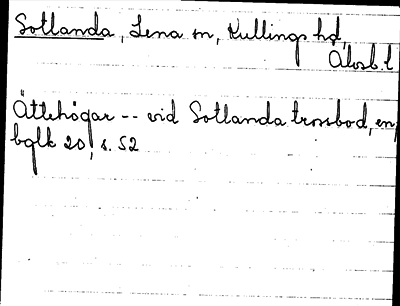 Sotlanda, Lena sn, Kullings hd,
Älvsb. l
Ättehögar -- vid Sotlanda trossbod, en
bqlk 20, s. 52